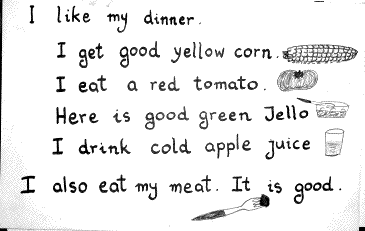 I like my dinner.
I get good yellow corn.
I eat a red tomato.
Here is good green Jello
I drink cold apple juice
I also eat my meat. It is good.